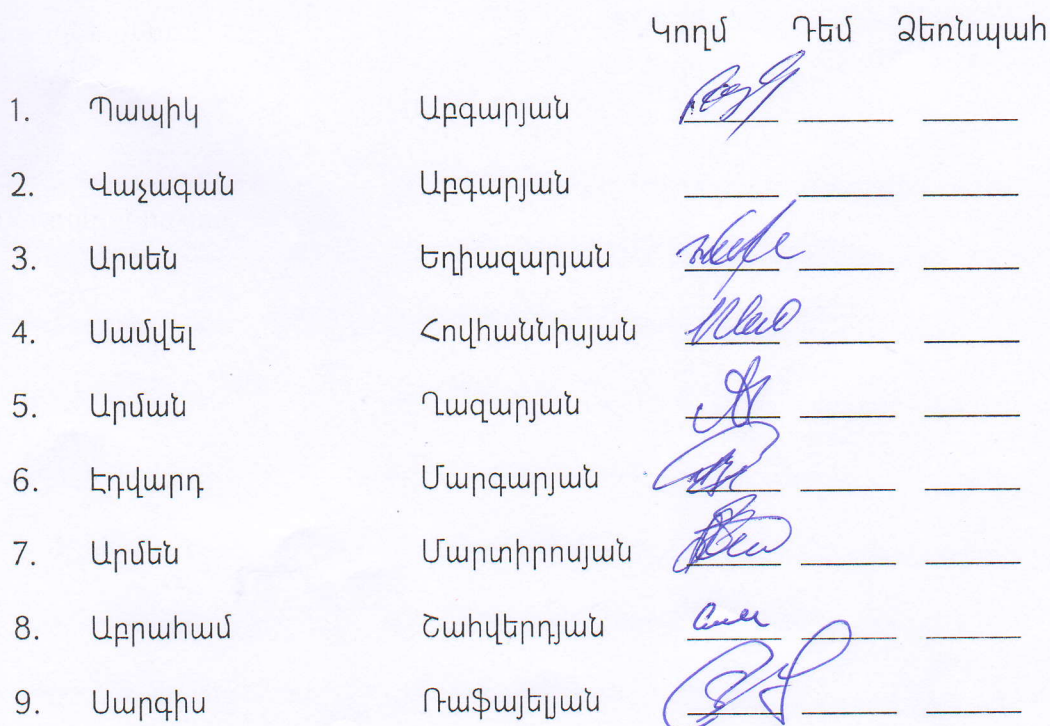 Կողմ Դեմ Ձեռնպահ
1. Պապիկ Աբգարյան
2. Վաչագան Աբգարյան
3. Արսեն Եղիազարյան
4. Սամվել Հովհաննիսյան
5. Արման Ղազարյան
6. Էդվարդ Մարգարյան
7. Արմեն Մարտիրոսյան
8. Աբրահամ Շահվերդյան
9. Սարգիս Ռաֆայելյան